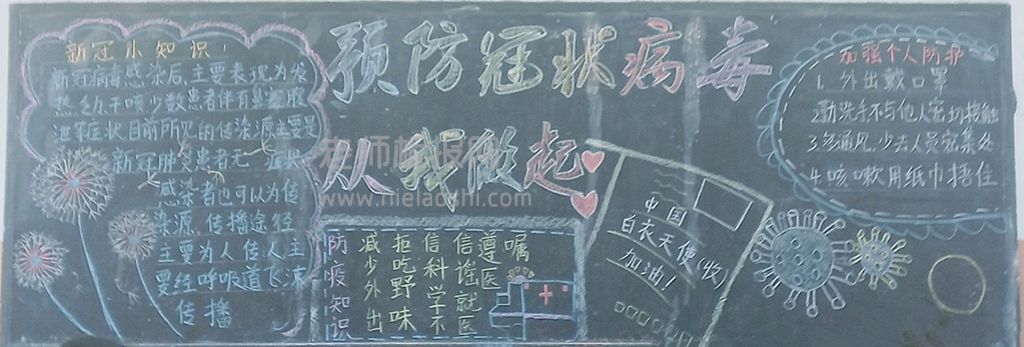 预防冠状病毒
从我做起
新冠小知识!
新冠病毒感染后,主要表现为发
热乏力干咳少数患者伴有鼻塞腹
泄等症状目前所见的传染源主要是
新冠肺炎患者无 症状
感染者也可以为传
染源,传播途径
主要为人传人主
要经呼吸道飞沫
传播
防疫知识
减少外出
拒吃野味
信科学不
信谣
遵医嘱
就医
中国
白衣天使(收)
加油!
加强个人防护
1. 外出戴口罩
2.勤洗手不与他人密切接触
3.多通风,少去人员密集处
4.咳嗽用纸巾捂住
老师板报网
www.mielaoshi.com